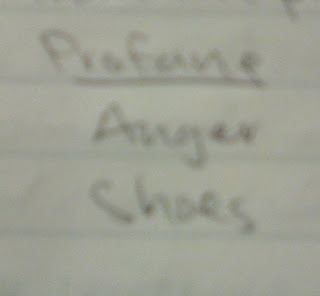 Profane
Anger
Shoes